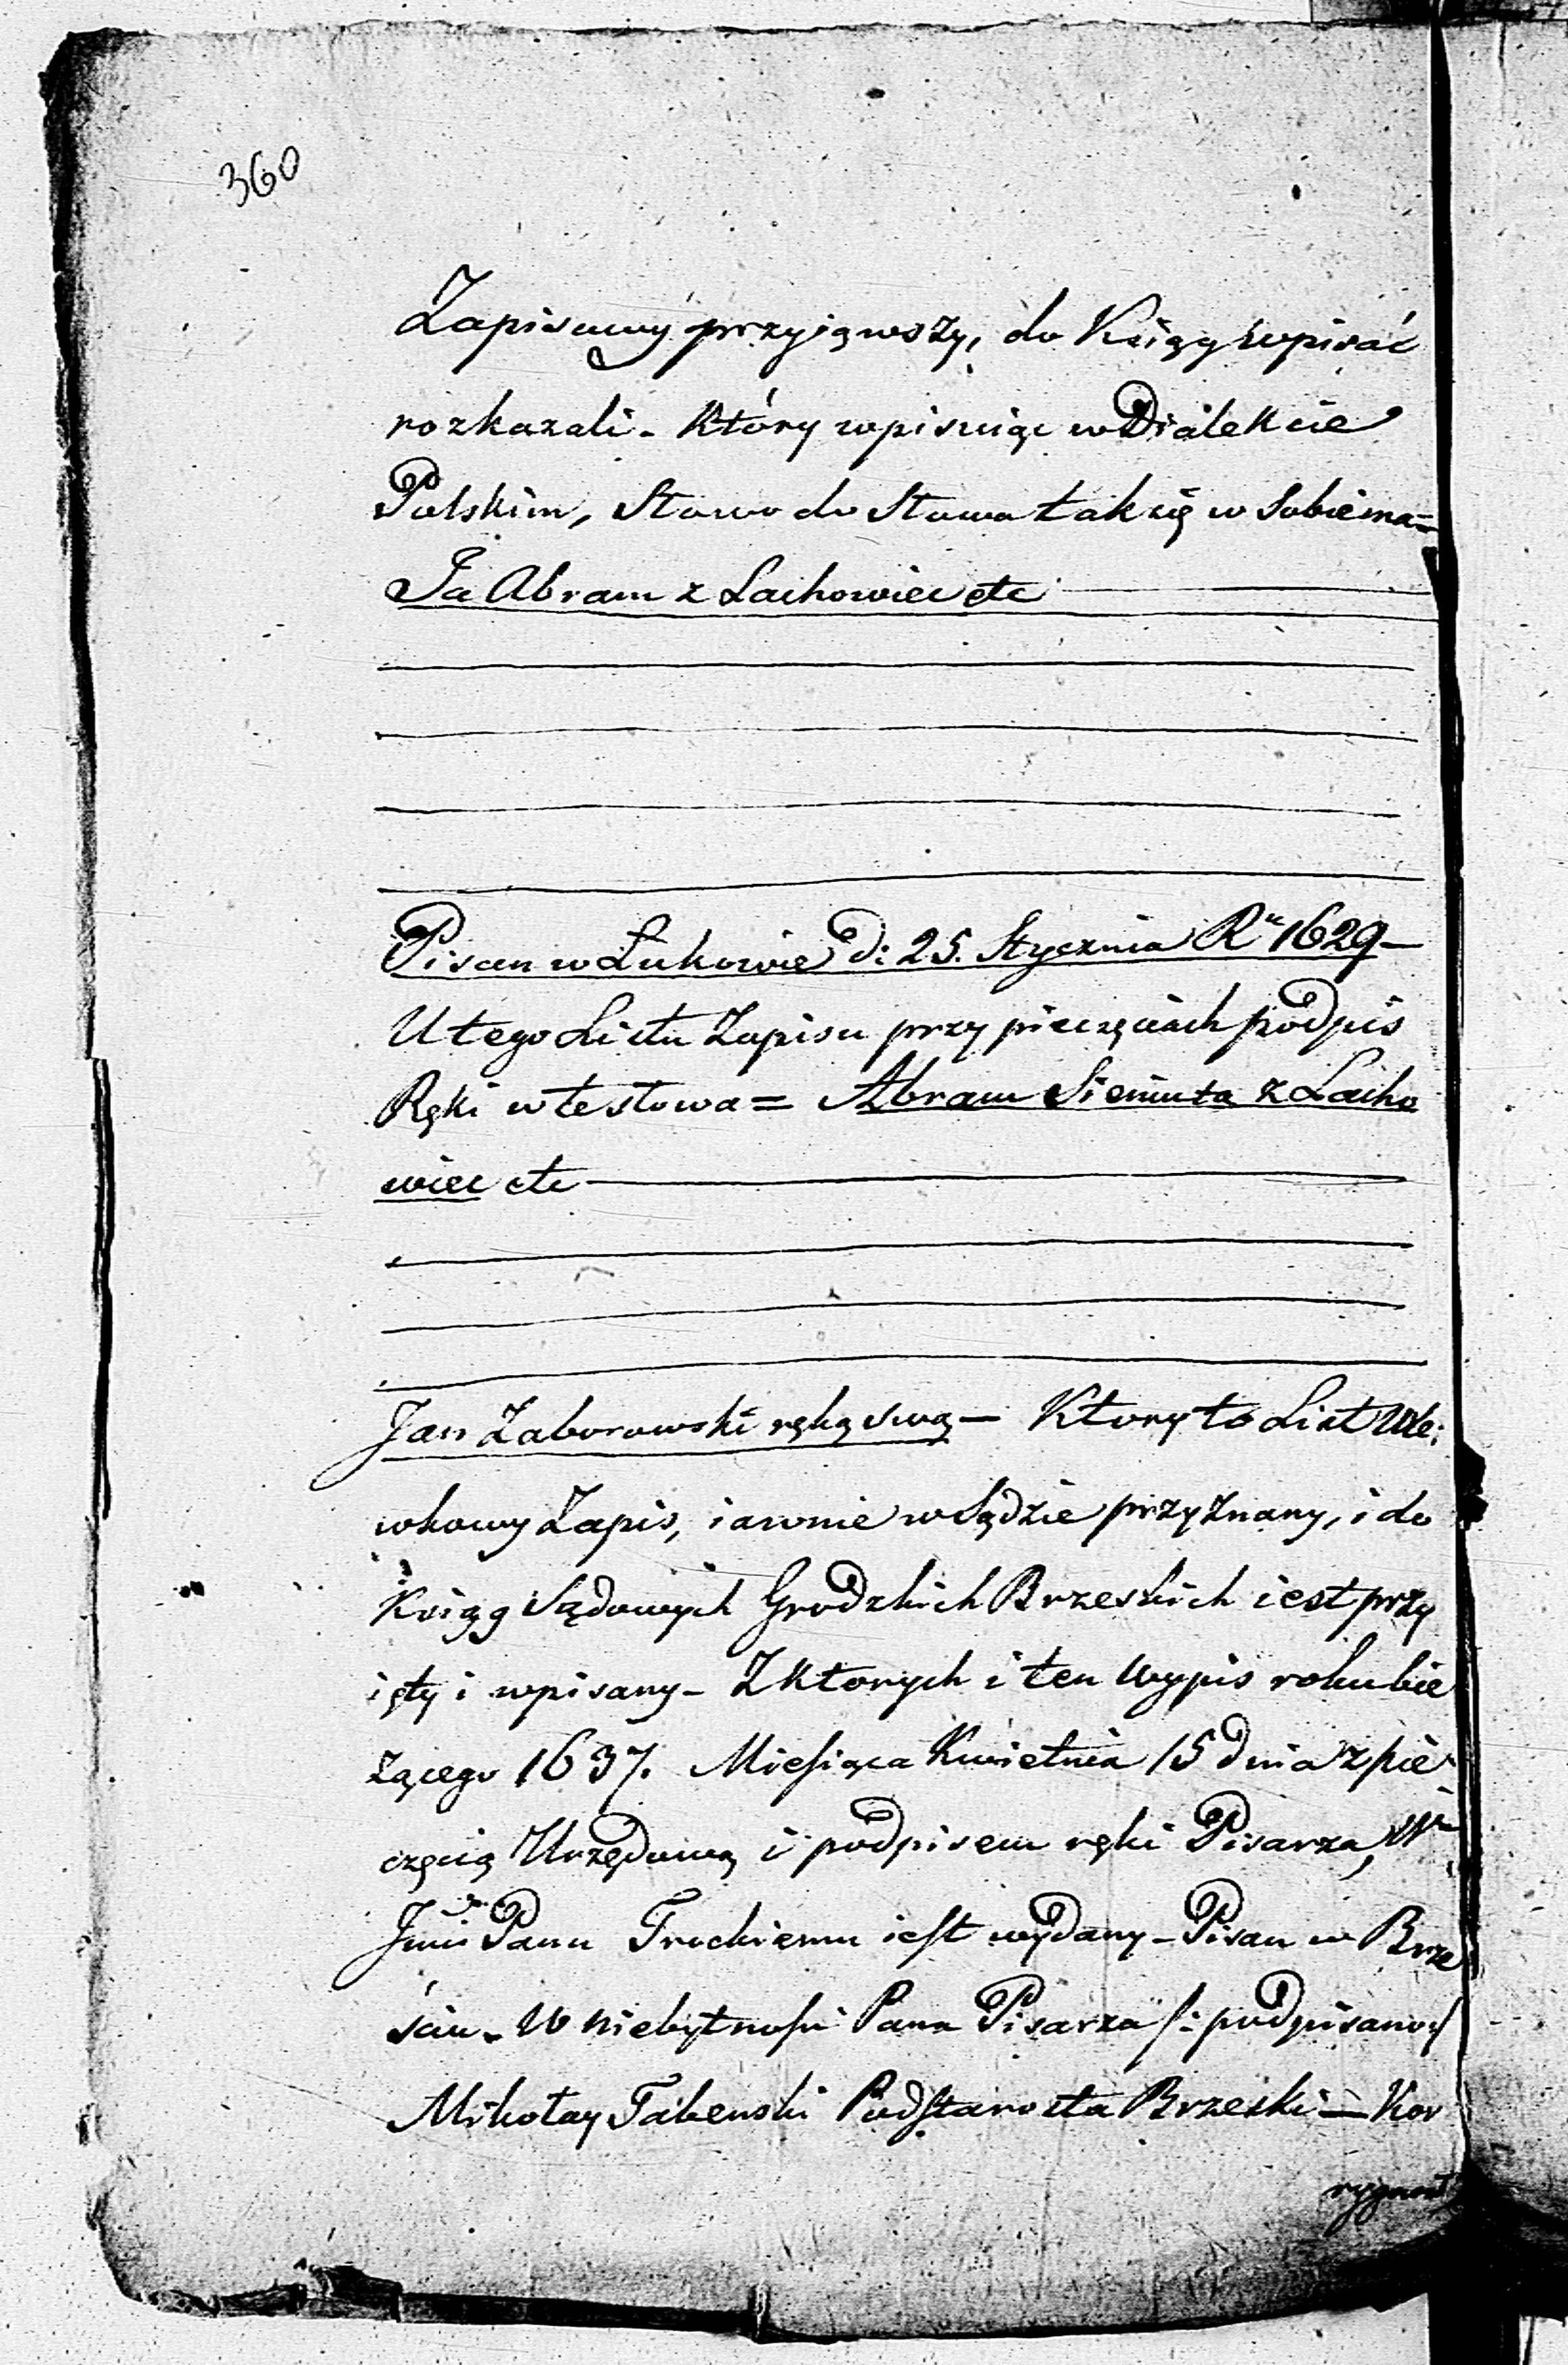 360
Zapisuwy przyiąwszy, do Księg wpisać
rozkazali. Który wpisuiąc w Dialekcie
Polskim, Słowo do Słowa tak się w Sobie ma=
Ja Abram z Lachowiec etc
Pisan w Łukowie d: 25. Stycznia Ru 1629 –
U tego Listu Zapisu przy pieczęciach podpis
Ręki w te słowa = Abram Sieniuta z Lacho
wiec etc
Jan Zaborowski ręką swą – Ktory to List Wle:
wkowy Zapis, iawnie w Sądzie przyznany, i do
Ksiąg Sądowych Grodzkich Brzeskich iest przy
ięty i wpisany – Z Ktorych i ten Wypis roku bie
żącego 1637. Miesiąca Kwietnia 15 dnia z pie
częcią Urzędową i podpisem ręki Pisarza,
Jmci Panu Trockiemu iest wydany – Pisan w Brze
ściu. W niebytności Pana Pisarza /: podpisano :/
Mikołay Podstarosta Brzeski = Kor
rygował